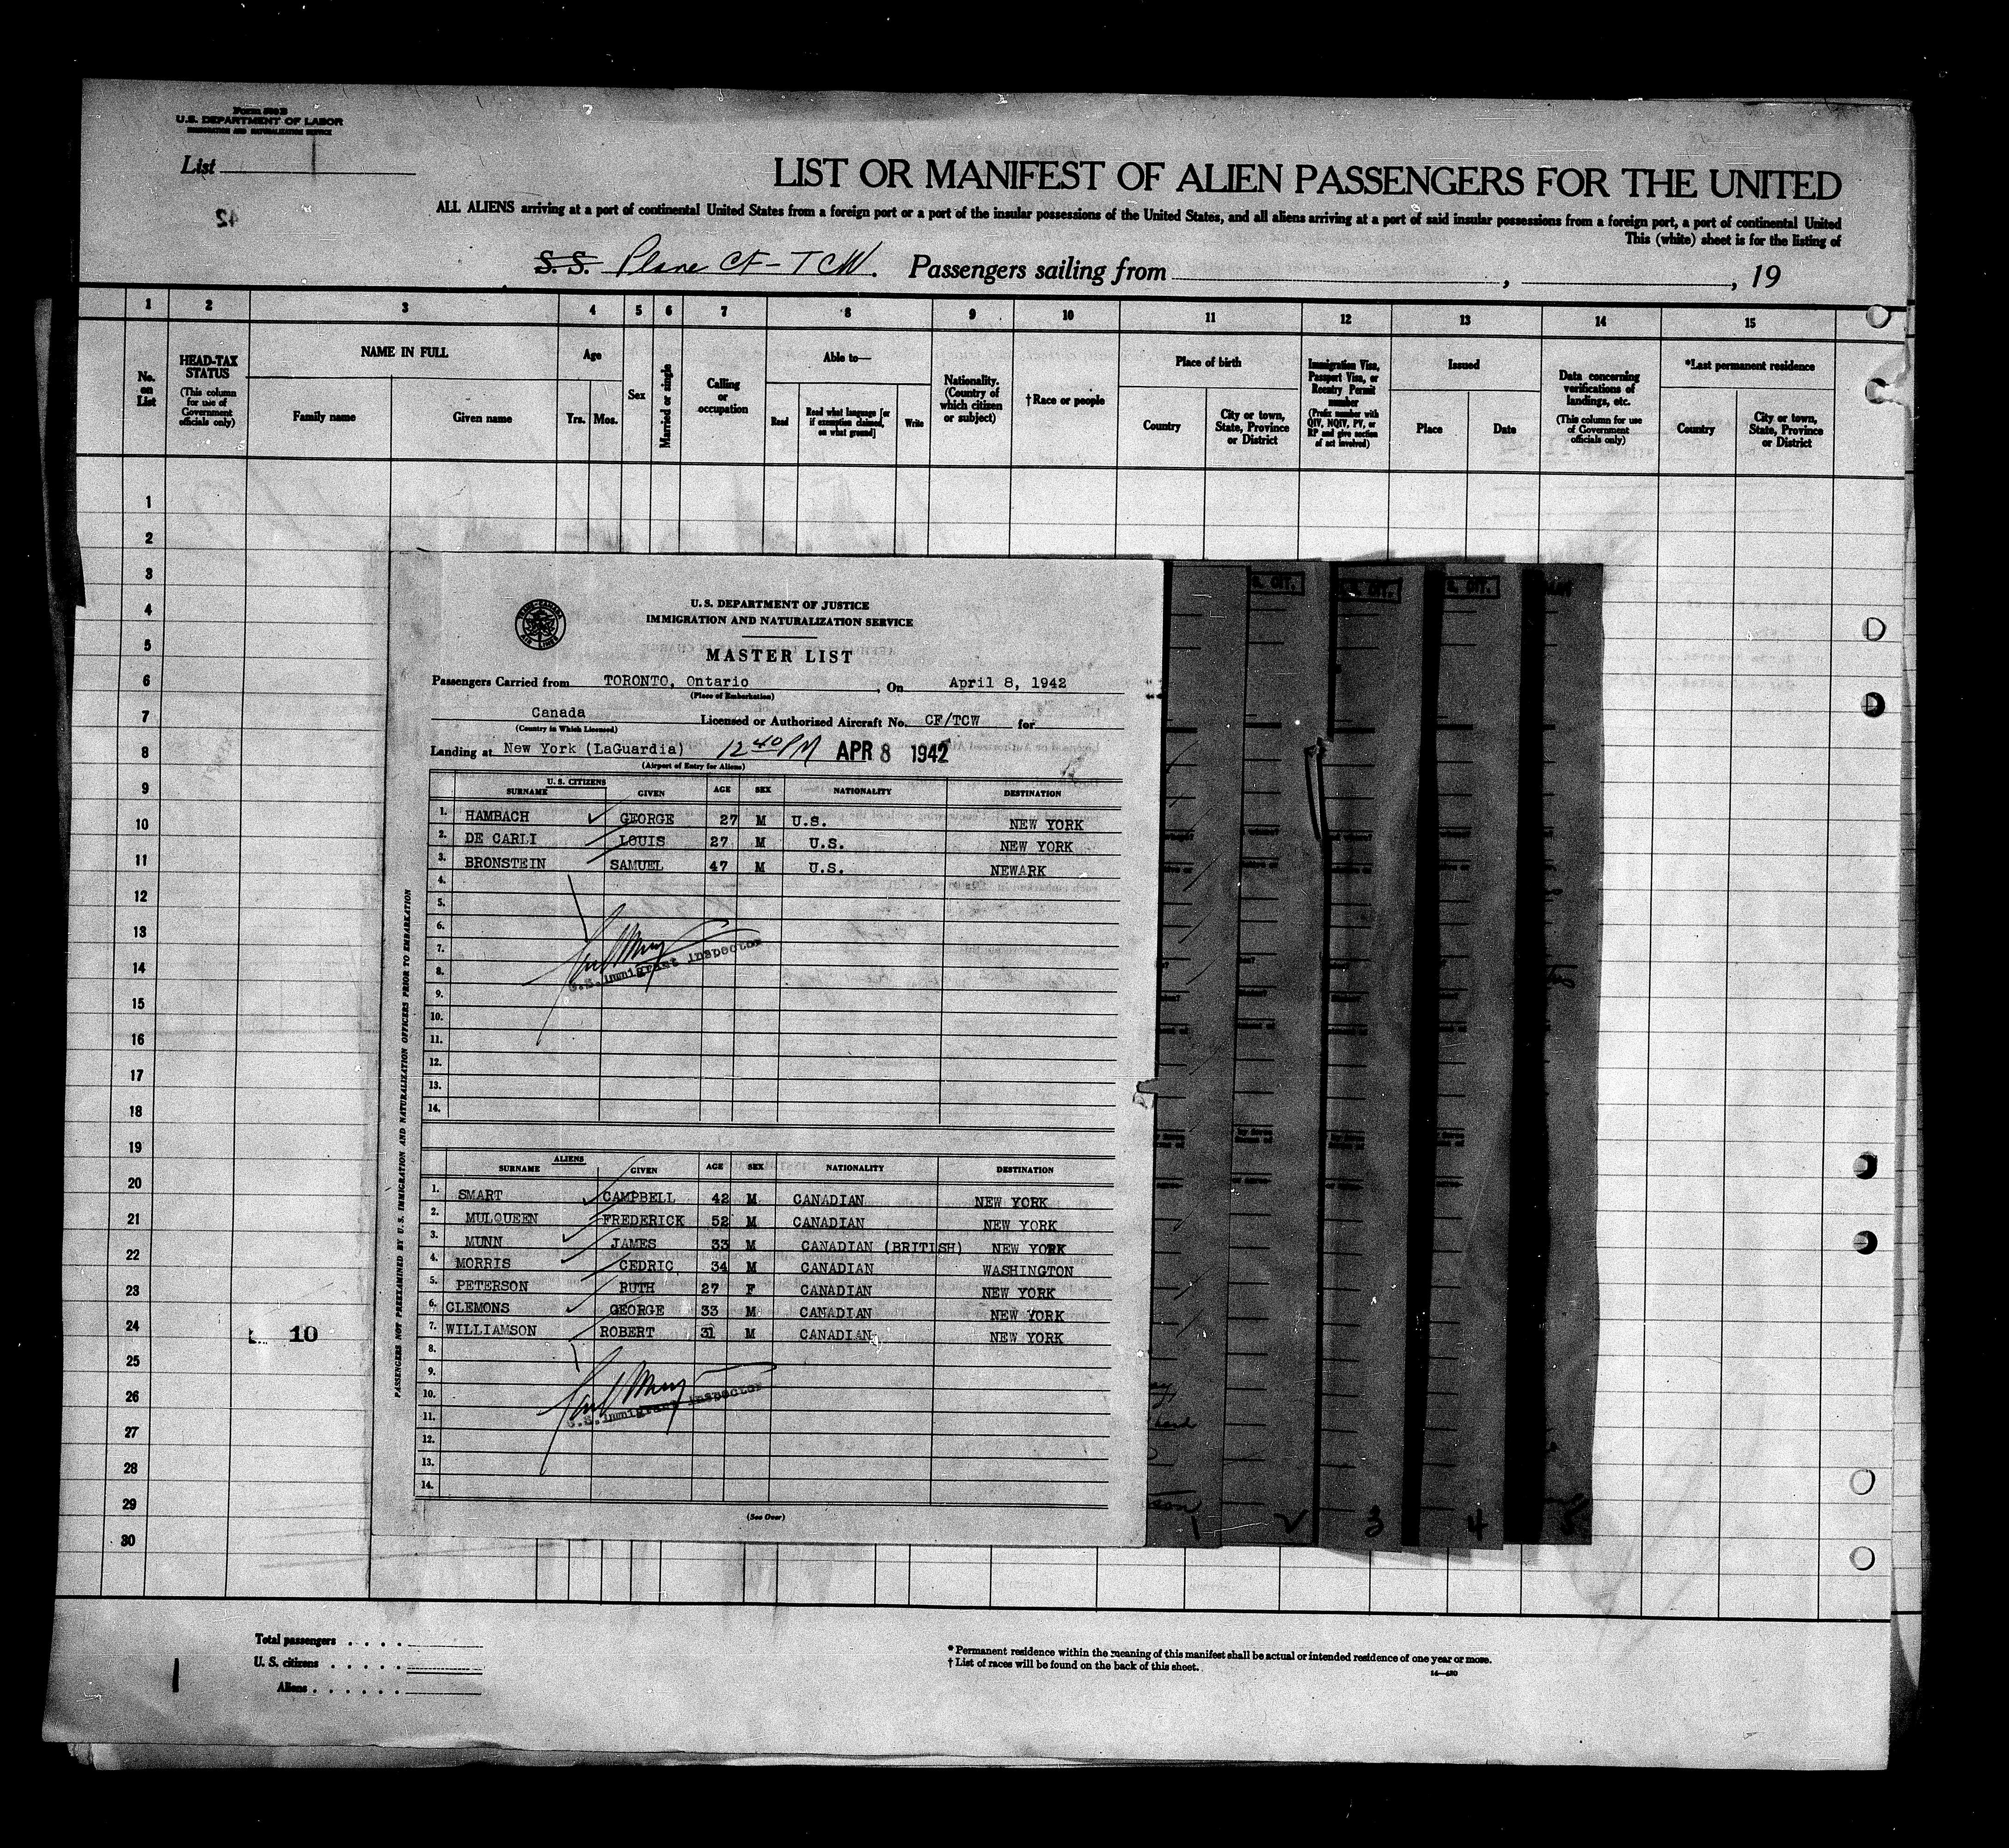 Form 500 B
U.S. DEPARTMENT OF LABOR
IMMIGRATION AND NATURALIZATION SERVICE
List 1
42
LIST OR MANIFEST OF ALIEN PASSENGERS FOR THE UNITED
ALL ALIENS arriving at a port of continental United States from a foreign port or a port of the insular possessions of the United States, and all aliens arriving at a port of said insular possessions from a foreign port, a port of continental United
This (white) sheet is for the listing of
S. S. Plane CF-TCW. Passengers sailing from , , 19
1 2 3 4 5 6 7 8 9 10 11 12 13 14 15
No. on List
HEAD-TAX STATUS
(This column for use of Government officials only)
NAME IN FULL
Family name Given name
Age
Yrs. Mos.
Sex
Married or single
Calling or occupation
Able to—
Read
Read what language [or if exemption claimed, on what ground]
Write
Nationality. (Country of which citizen or subject)
†Race or people
Place of birth
Country
City or town, State, Province or District
Immigration Visa, Passport Visa, or Reentry Permit number
(Prefix number with QIV, NQIV, PV, or RP and give section of act involved)
Issued
Place Date
Data concerning verifications of landings, etc.
(This column for use of Government officials only)
*Last permanent residence
Country
City or town, State, Province or District
1
2
3
4
5
6
7
8
9
10
11
12
13
14
15
16
17
18
19
20
21
22
23
24
25
26
27
28
29
30
10
TRANS-CANADA AIR LINES
U. S. DEPARTMENT OF JUSTICE
IMMIGRATION AND NATURALIZATION SERVICE
MASTER LIST
Passengers Carried from TORONTO, Ontario , On April 8, 1942
(Place of Embarkation)
Canada Licensed or Authorized Aircraft No. CF/TCW for
(Country in Which Licensed)
Landing at New York (LaGuardia) 12 40 PM APR 8 1942
(Airport of Entry for Aliens)
U. S. CITIZENS
SURNAME GIVEN AGE SEX NATIONALITY DESTINATION
1. HAMBACH GEORGE 27 M U.S. NEW YORK
2. DE CARLI LOUIS 27 M U.S. NEW YORK
3. BRONSTEIN SAMUEL 47 M U.S. NEWARK
4.
5.
6.
7.
8.
U.S. Immigrant Inspector
9.
10.
11.
12.
13.
14.
ALIENS
SURNAME GIVEN AGE SEX NATIONALITY DESTINATION
1. SMART CAMPBELL 42 M CANADIAN NEW YORK
2. MULQUEEN FREDERICK 52 M CANADIAN NEW YORK
3. MUNN JAMES 33 M CANADIAN (BRITISH) NEW YORK
4. MORRIS CEDRIC 34 M CANADIAN WASHINGTON
5. PETERSON RUTH 27 F CANADIAN NEW YORK
6. CLEMONS GEORGE 33 M CANADIAN NEW YORK
7. WILLIAMSON ROBERT 31 M CANADIAN NEW YORK
8.
9.
10.
U.S. Immigrant Inspector
11.
12.
13.
14.
(See Over)
PASSENGERS NOT PREEXAMINED BY U. S. IMMIGRATION AND NATURALIZATION OFFICERS PRIOR TO EMBARKATION
CIT. CIT. CIT.
1 2 3 4 5
Total passengers
U. S. citizens
Aliens
1
* Permanent residence within the meaning of this manifest shall be actual or intended residence of one year or more.
† List of races will be found on the back of this sheet.
14—420